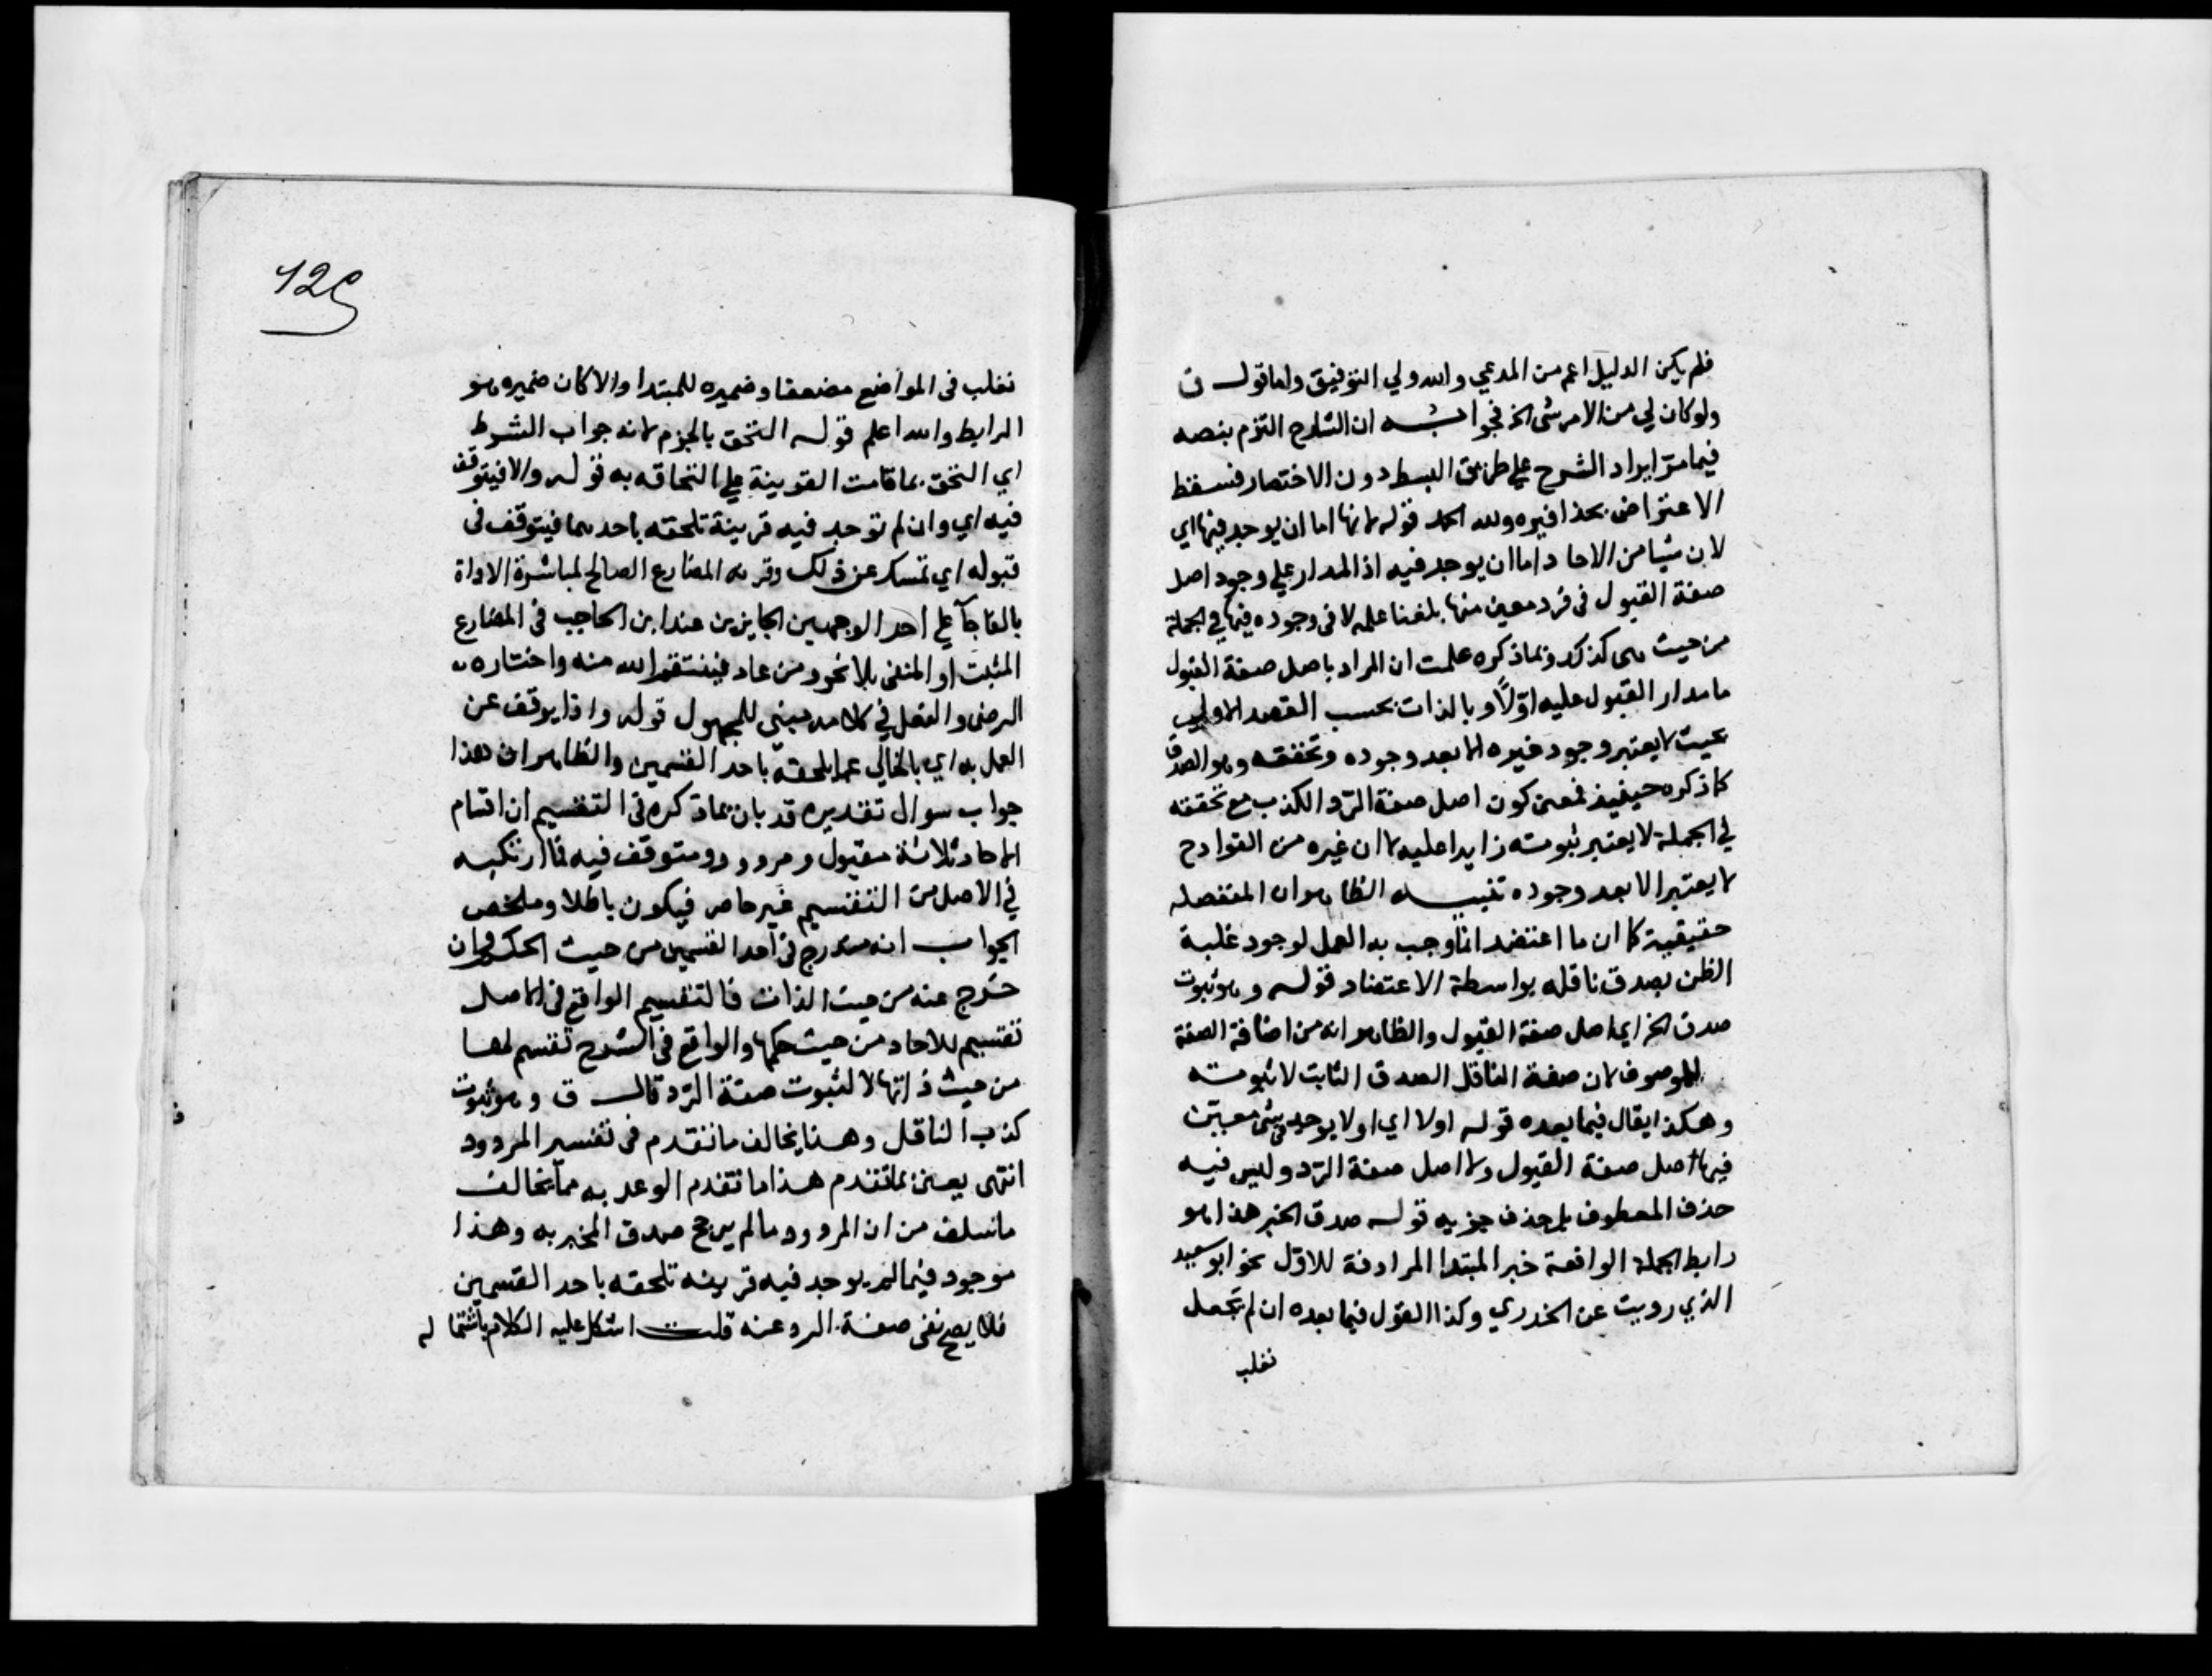 فلم يكن الدليل اعم من المدعي والله ولي التوفيق واما قول ق
ولو كان لي من الامر شي الخ فجوابه ان الشارح التزم بنصه
فيما مر ايراد الشرح علي طريق البسط دون الاختصار فسقط
الاعتراض بحذافيره ولله الحمد قوله لانها اما ان يوجد فيها اي
لان شيا من الاحاد اما ان يوجد فيه اذ المدار علي وجود اصل
صفة القبول في فرد معين منها بلغنا علمه لا في وجوده فيها في الجملة
من حيث هي كذلك وبما ذكره علمت ان المراد باصل صفة القبول
ما مدار القبول عليه اوّلًا وبالذات بحسب القصد الاولي
بحيث لا يعتبر وجود غيره الا بعد وجوده وتحققه وهو الصدق
كما ذكره حينئيذ فمعنى كون اصل صفة الرّد الكذب مع تحققه
في الجملة لا يعتبر ثبوته زايدا عليه لا ان غيره من القوادح
لا يعتبر الا بعد وجوده تنبيه الظاهر ان المنفصله
حقيقية كما ان ما اعتضد انما وجب به العمل لوجود غلبة
الظن بصدق ناقله بواسطة الاعتضاد قوله وهو ثبوت
صدق الخ اي اصل صفة القبول والظاهر انه من اضافة الصفة
للموصوف لان صفة الناقل الصدق الثابت لا ثبوته
وهكذا يقال فيما بعده قوله اولا اي اولا يوجد في شي معين
فيها اصل صفة القبول ولا اصل صفة الرّد وليس فيه
حذف المعطوف بل حذف جزيه قوله صدق الخبر هذا هو
رابط الجملة الواقعة خبر المبتدا المرادفة للاوّل نحو ابو سعيد
الذي رويت عن الخدري وكذا القول فيما بعده ان لم تجعل
نغلب
129
نغلب في المواضع مضعفا وضميره للمبتدا والا كان ضميره هو
الرابط والله اعلم قوله التحق بالجزم لانه جواب الشرط
اي التحق بما قامت القرينة علي التحاقه به قوله والا فيتوقف
فيه اي وان لم توجد فيه قرينة تلحقه باحدهما فيتوقف في
قبوله اي تمسك عن ذلك وقرنه المضارع الصالح لمباشرة الاداة
بالفا جآ علي احد الوجهين الجايزين عند ابن الحاجب في المضارع
المثبت او المنفي بلا نحو ومن عاد فينتقم الله منه واختاره
الرضي والفعل في كلامه مبني للمجهول قوله واذا يوقف عن
العمل به اي بالخالي عما يلحقه باحد القسمين والظاهر ان هذا
جواب سوال تقديره قد بان بما ذكره في التقسيم ان اقسام
الاحاد ثلاثة مقبول ومردود ومتوقف فيه فما ارتكبه
في الاصل من التقسيم غير حاصر فيكون باطلا وملخص
الجواب انه مندرج في احد القسمين من حيث الحكم وان
خرج عنه من حيث الذات فالتقسيم الواقع في الاصل
تقسيم للاحاد من حيث حكمها والواقع في الشرح تقسيم لها
من حيث ذاتها لا لثبوت صفة الرّد قال ق وهو ثبوت
كذب الناقل وهذا يخالف ما تقدم في تفسير المردود
انتهى يعنى بما تقدم هذا ما تقدم الوعد به مما يخالف
ما سلف من ان المردود ما لم يرجح صدق المخبر به وهذا
موجود فيما لم يوجد فيه قرينه تلحقه باحد القسمين
فلا يصح نفى صفة الرد عنه قلت اشكل عليه الكلام باشتماله